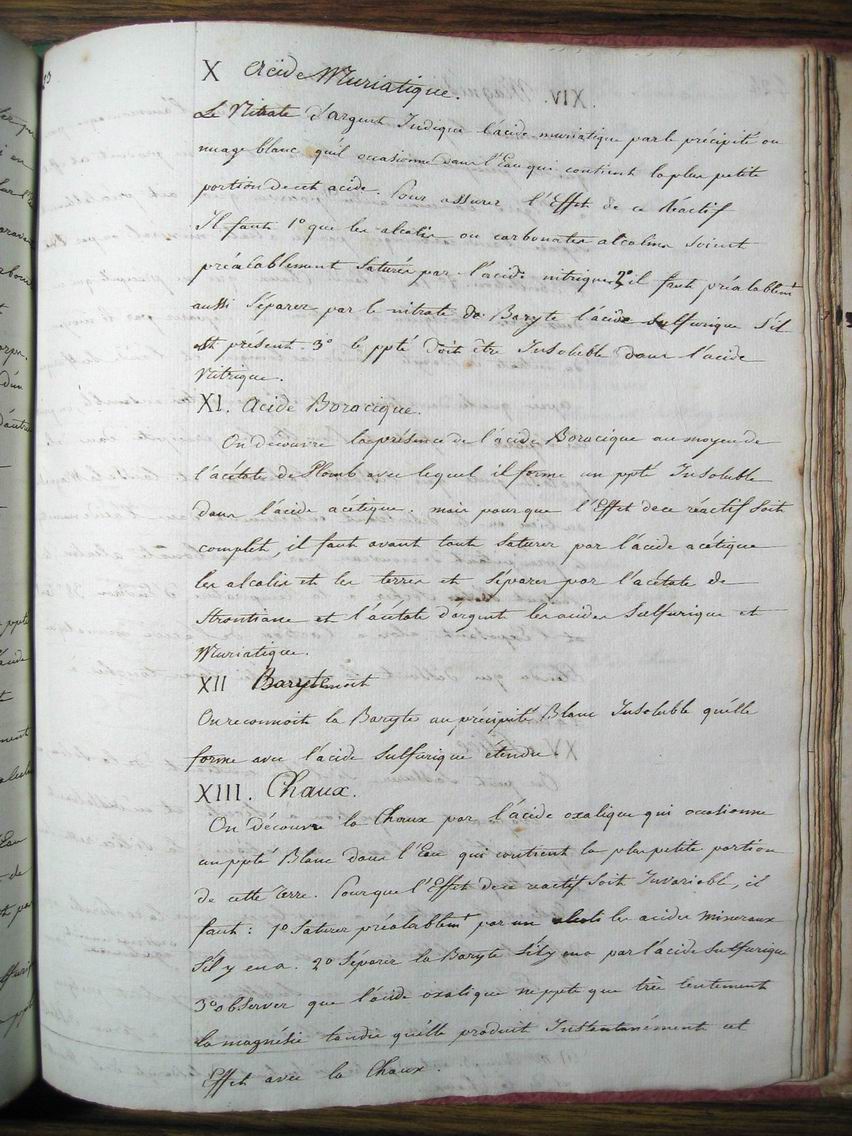 X Acide Muriatique.
Le Nitrate d'argent Indique l'acide muriatique par le précipité ou
nuage blanc qu'il occasionne dans l'Eau qui contient la plus petite
portion de cet acide. Pour assurer l'Effet de ce Réactif
Il faut 1° que les alcalis ou carbonates alcalins soient
préalablement saturés par l'acide nitrique 2° il faut préalablemt
aussi séparer par le nitrate de Baryte l'acide sulfurique s'il
est présent 3° le ppté doit être Insoluble dans l'acide
Nitrique.
XI. Acide Boracique.
On découvre la présence de l'acide Boracique au moyen de
l'acétate de Plomb avec lequel il forme un ppté Insoluble
dans l'acide acétique. mais pour que l'Effet de ce réactif soit
complet, il faut avant tout saturer par l'acide acétique
les alcalis et les terres et séparer par l'acétate de
Strontiane et l'acétate d'argent les acides sulfurique et
Muriatique.
XII Baryte
On reconnoit la Baryte au précipité Blanc Insoluble qu'elle
forme avec l'acide sulfurique etendu.
XIII. Chaux.
On découvre la Chaux par l'acide oxalique qui occasionne
un ppté Blanc dans l'Eau qui contient la plus petite portion
de cette terre. Pour que l'Effet de ce réactif soit Invariable, il
faut : 1° saturer préalablemt par un alcali les acides mineraux
s'il y en a. 2° séparer la Baryte s'il y en a par l'acide sulfurique
3° observer que l'acide oxalique ne ppte que très lentement
la magnésie tandis qu'elle produit Instantanément cet
Effet avec la Chaux.